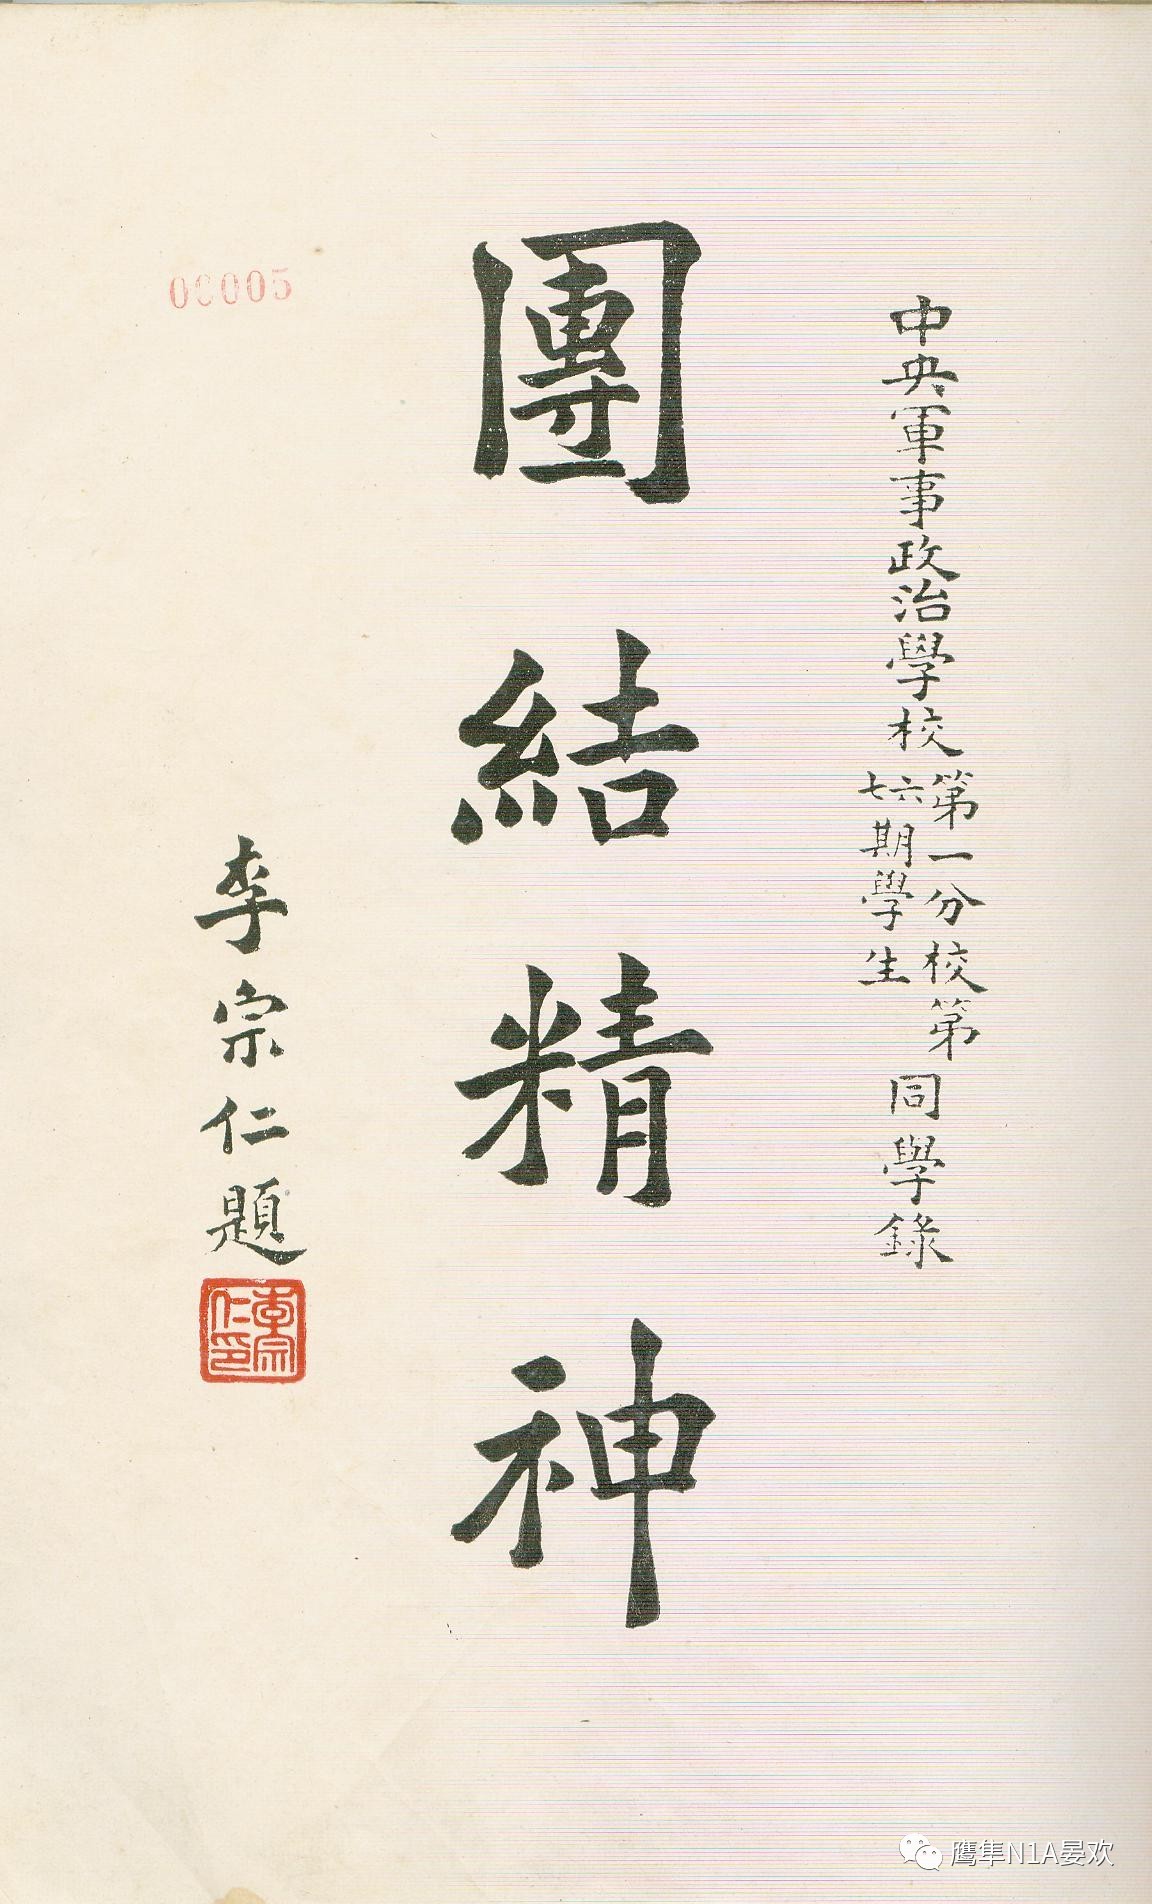 中央軍事政治學校第一分校第六七期學生同學錄
團結精神
李宗仁題
李宗仁印
00005
鹰隼N1A晏欢